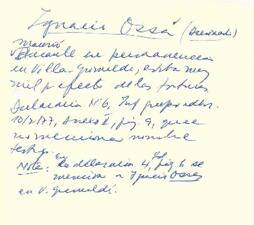 Ignacio Ossá
murió
durante su permanencia
en Villa Grimaldi, estaba muy
mal por efecto de las torturas
Declaración Nº6, Inf preparador
10/2/77, Anexo 2, pág 9, que
no menciona nombre
testigo.
Nota: En declaración 4, pág 6 se
menciona a Ignacio Ossa
en V. Grimaldi.